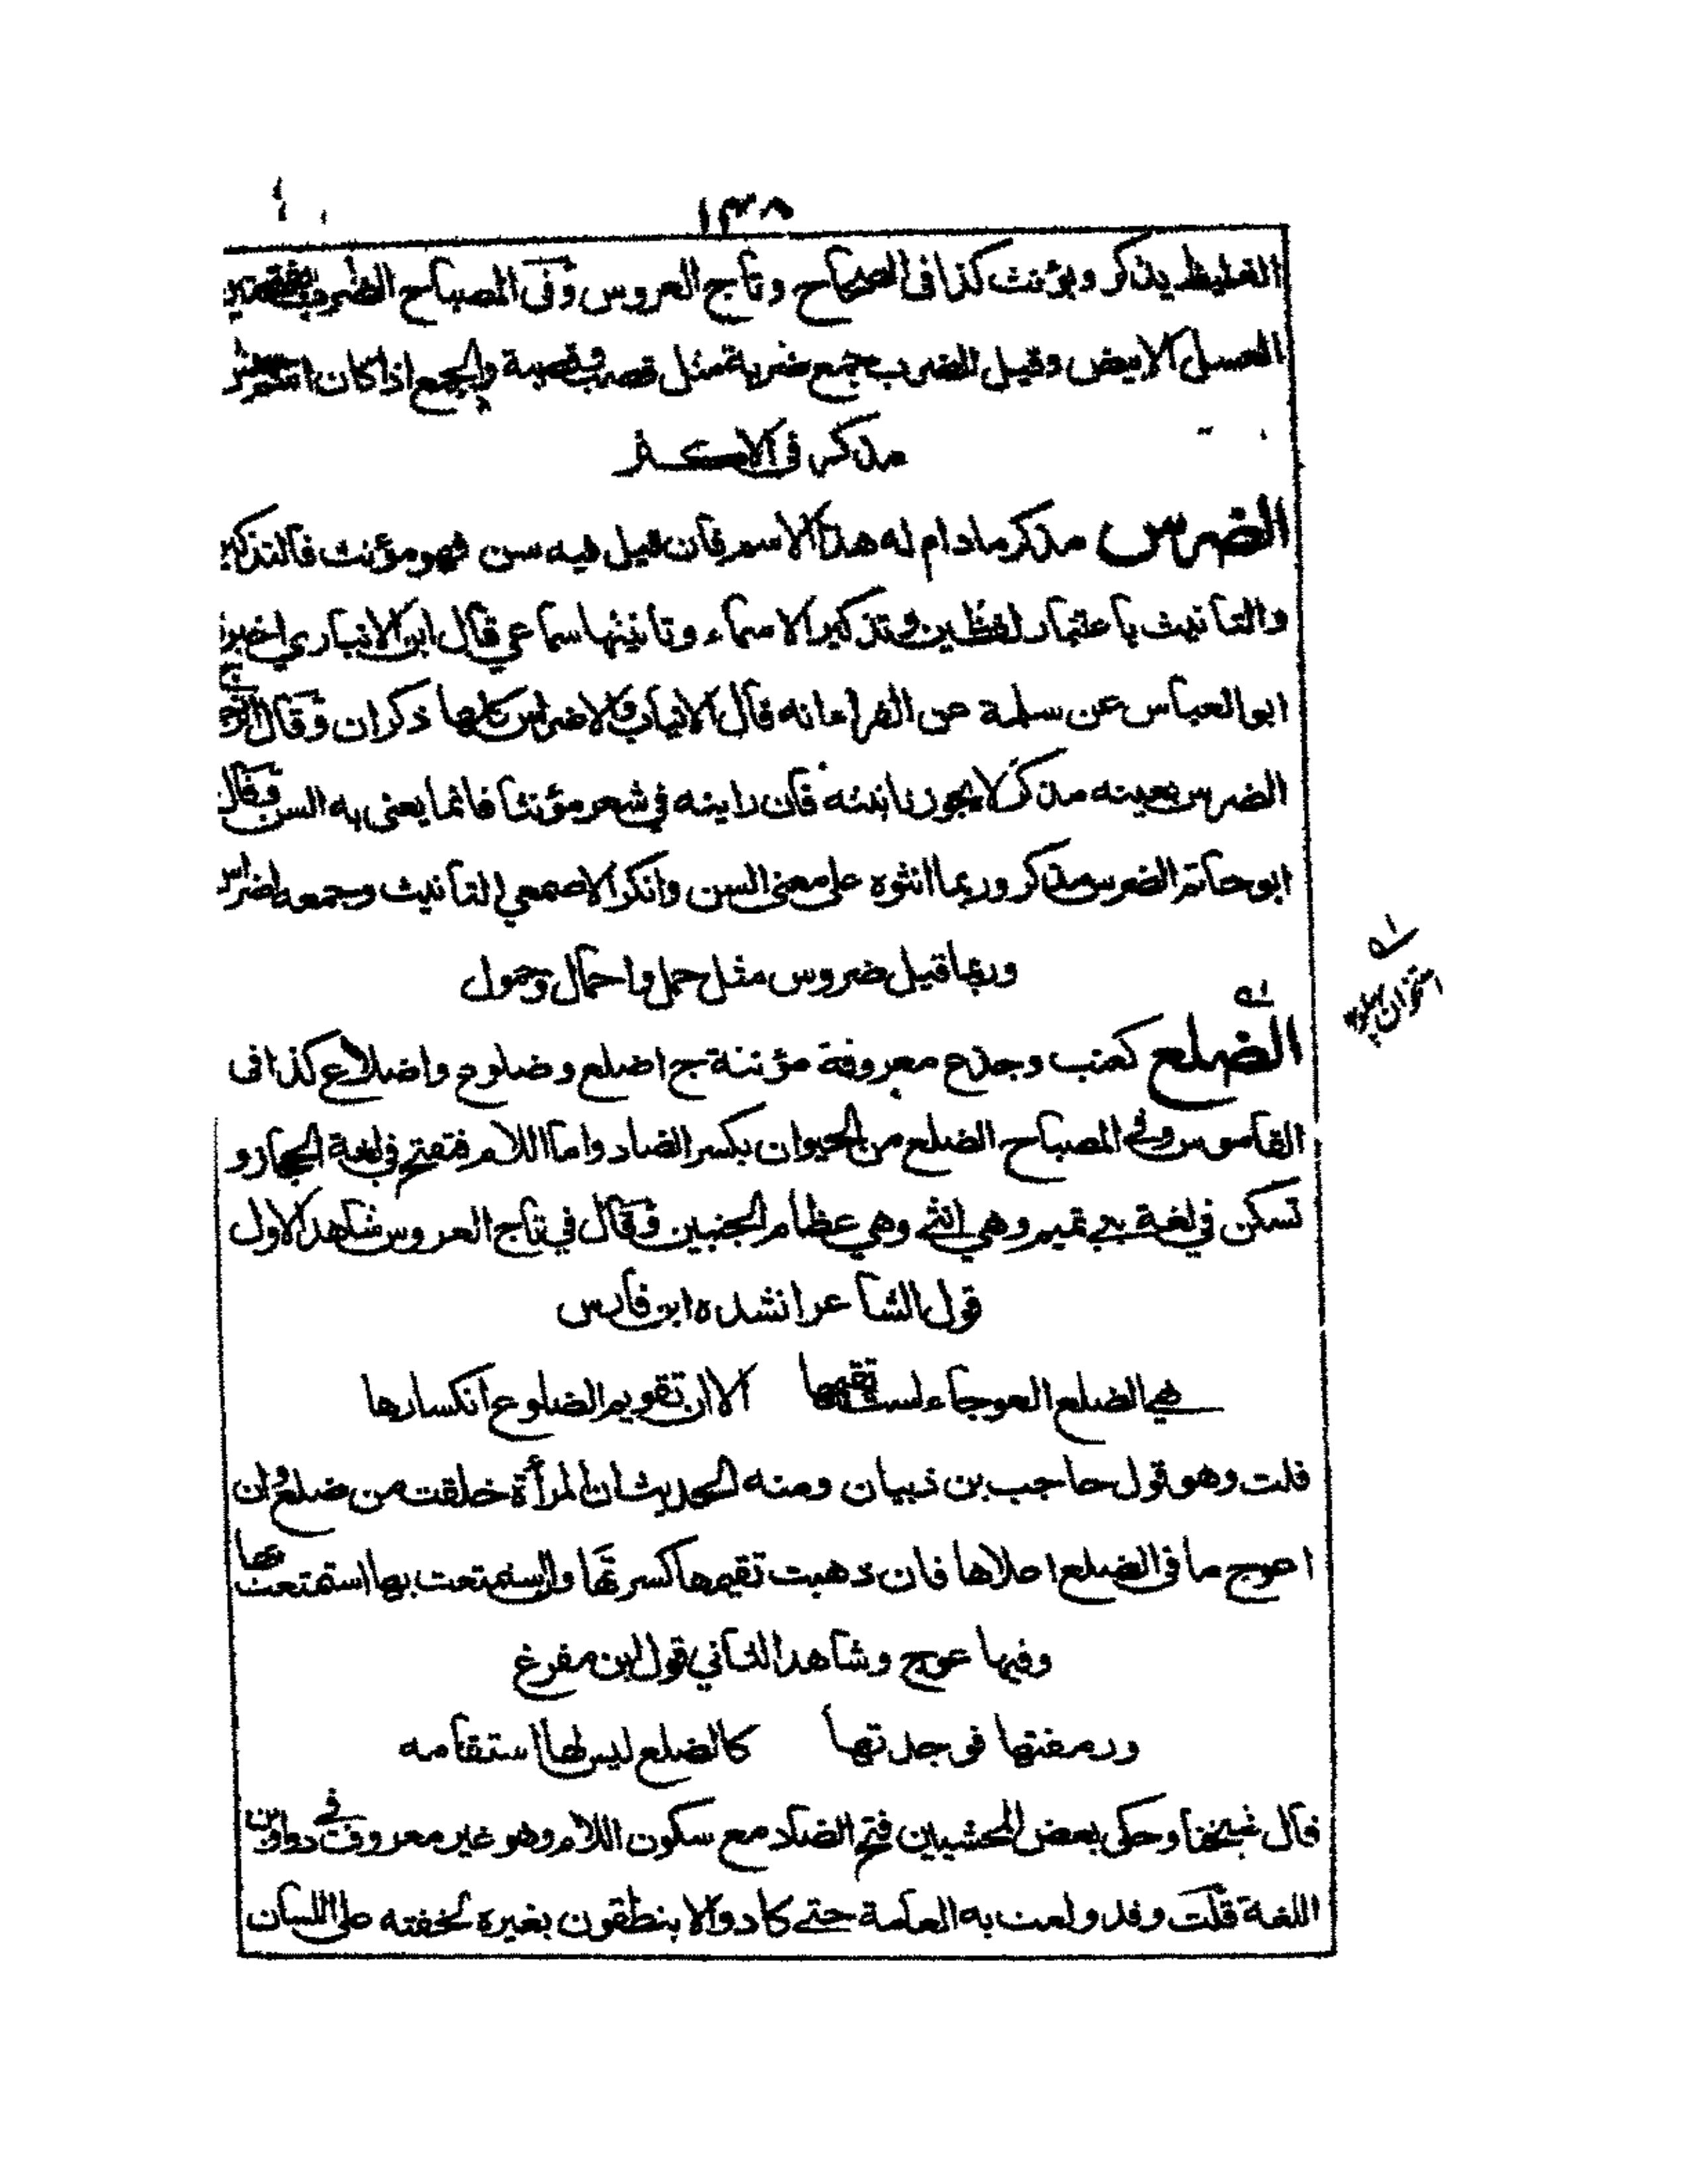 ١٣٨
الغليظ يذكر ويؤنث كذا فى الصحاح وتاج العروس وفى المصباح الضرب بفتحتين
العسل الابيض وقيل الضرب جمع ضربة مثل قصب وقصبة والجمع اذا كان اسم جنس
مذكر فى الاكثر
الضرس مذكر مادام له هذا الاسم فان قيل فيه سن فهو مؤنث فالتذكير
والتانيث باعتبار لفظين وتذكير الاسماء وتانيثها سماعي قال ابن الانباري اخبرنا
ابو العباس عن سلمة عن الفراء انه قال الانياب والاضراس كلها ذكران وقال الزجاج
الضرس بعينه مذكر لا يجوز تانيثه فان رايته في شعر مؤنثا فانما يعنى به السن وقال
ابو حاتم الضرس مذكر وربما انثوه على معنى السن وانكر الاصمعي التانيث وجمعه اضراس
وربما قيل ضروس مثل حمل واحمال وحمول
الضلع كعنب وجذع معروفة مؤنثة ج اضلع وضلوع واضلاع كذا فى
استخوان پہلو
القاموس وفي المصباح الضلع من الحيوان بكسر الضاد واما اللام فتفتح فى لغة الحجاز و
تسكن في لغة بني تميم وهي انثى وهي عظام الجنبين وقال في تاج العروس شاهد الاول
قول الشاعر انشده ابن فارس
هي الضلع العوجاء لست تقيمها الا ان تقويم الضلوع انكسارها
قلت وهو قول حاجب بن ذبيان ومنه الحديث ان المرأة خلقت من ضلع وان
اعوج ما فى الضلع اعلاها فان ذهبت تقيمها كسرتها وان استمتعت بها استمتعت بها
وفيها عوج وشاهد الثاني قول ابن مفرغ
ورمقتها فوجدتها كالضلع ليس لها استقامه
قال شيخنا وحكى بعض المحشيين فتح الضاد مع سكون اللام وهو غير معروف في دواوين
اللغة قلت وقد ولعت به العامة حتى كادوا لا ينطقون بغيره لخفته على اللسان